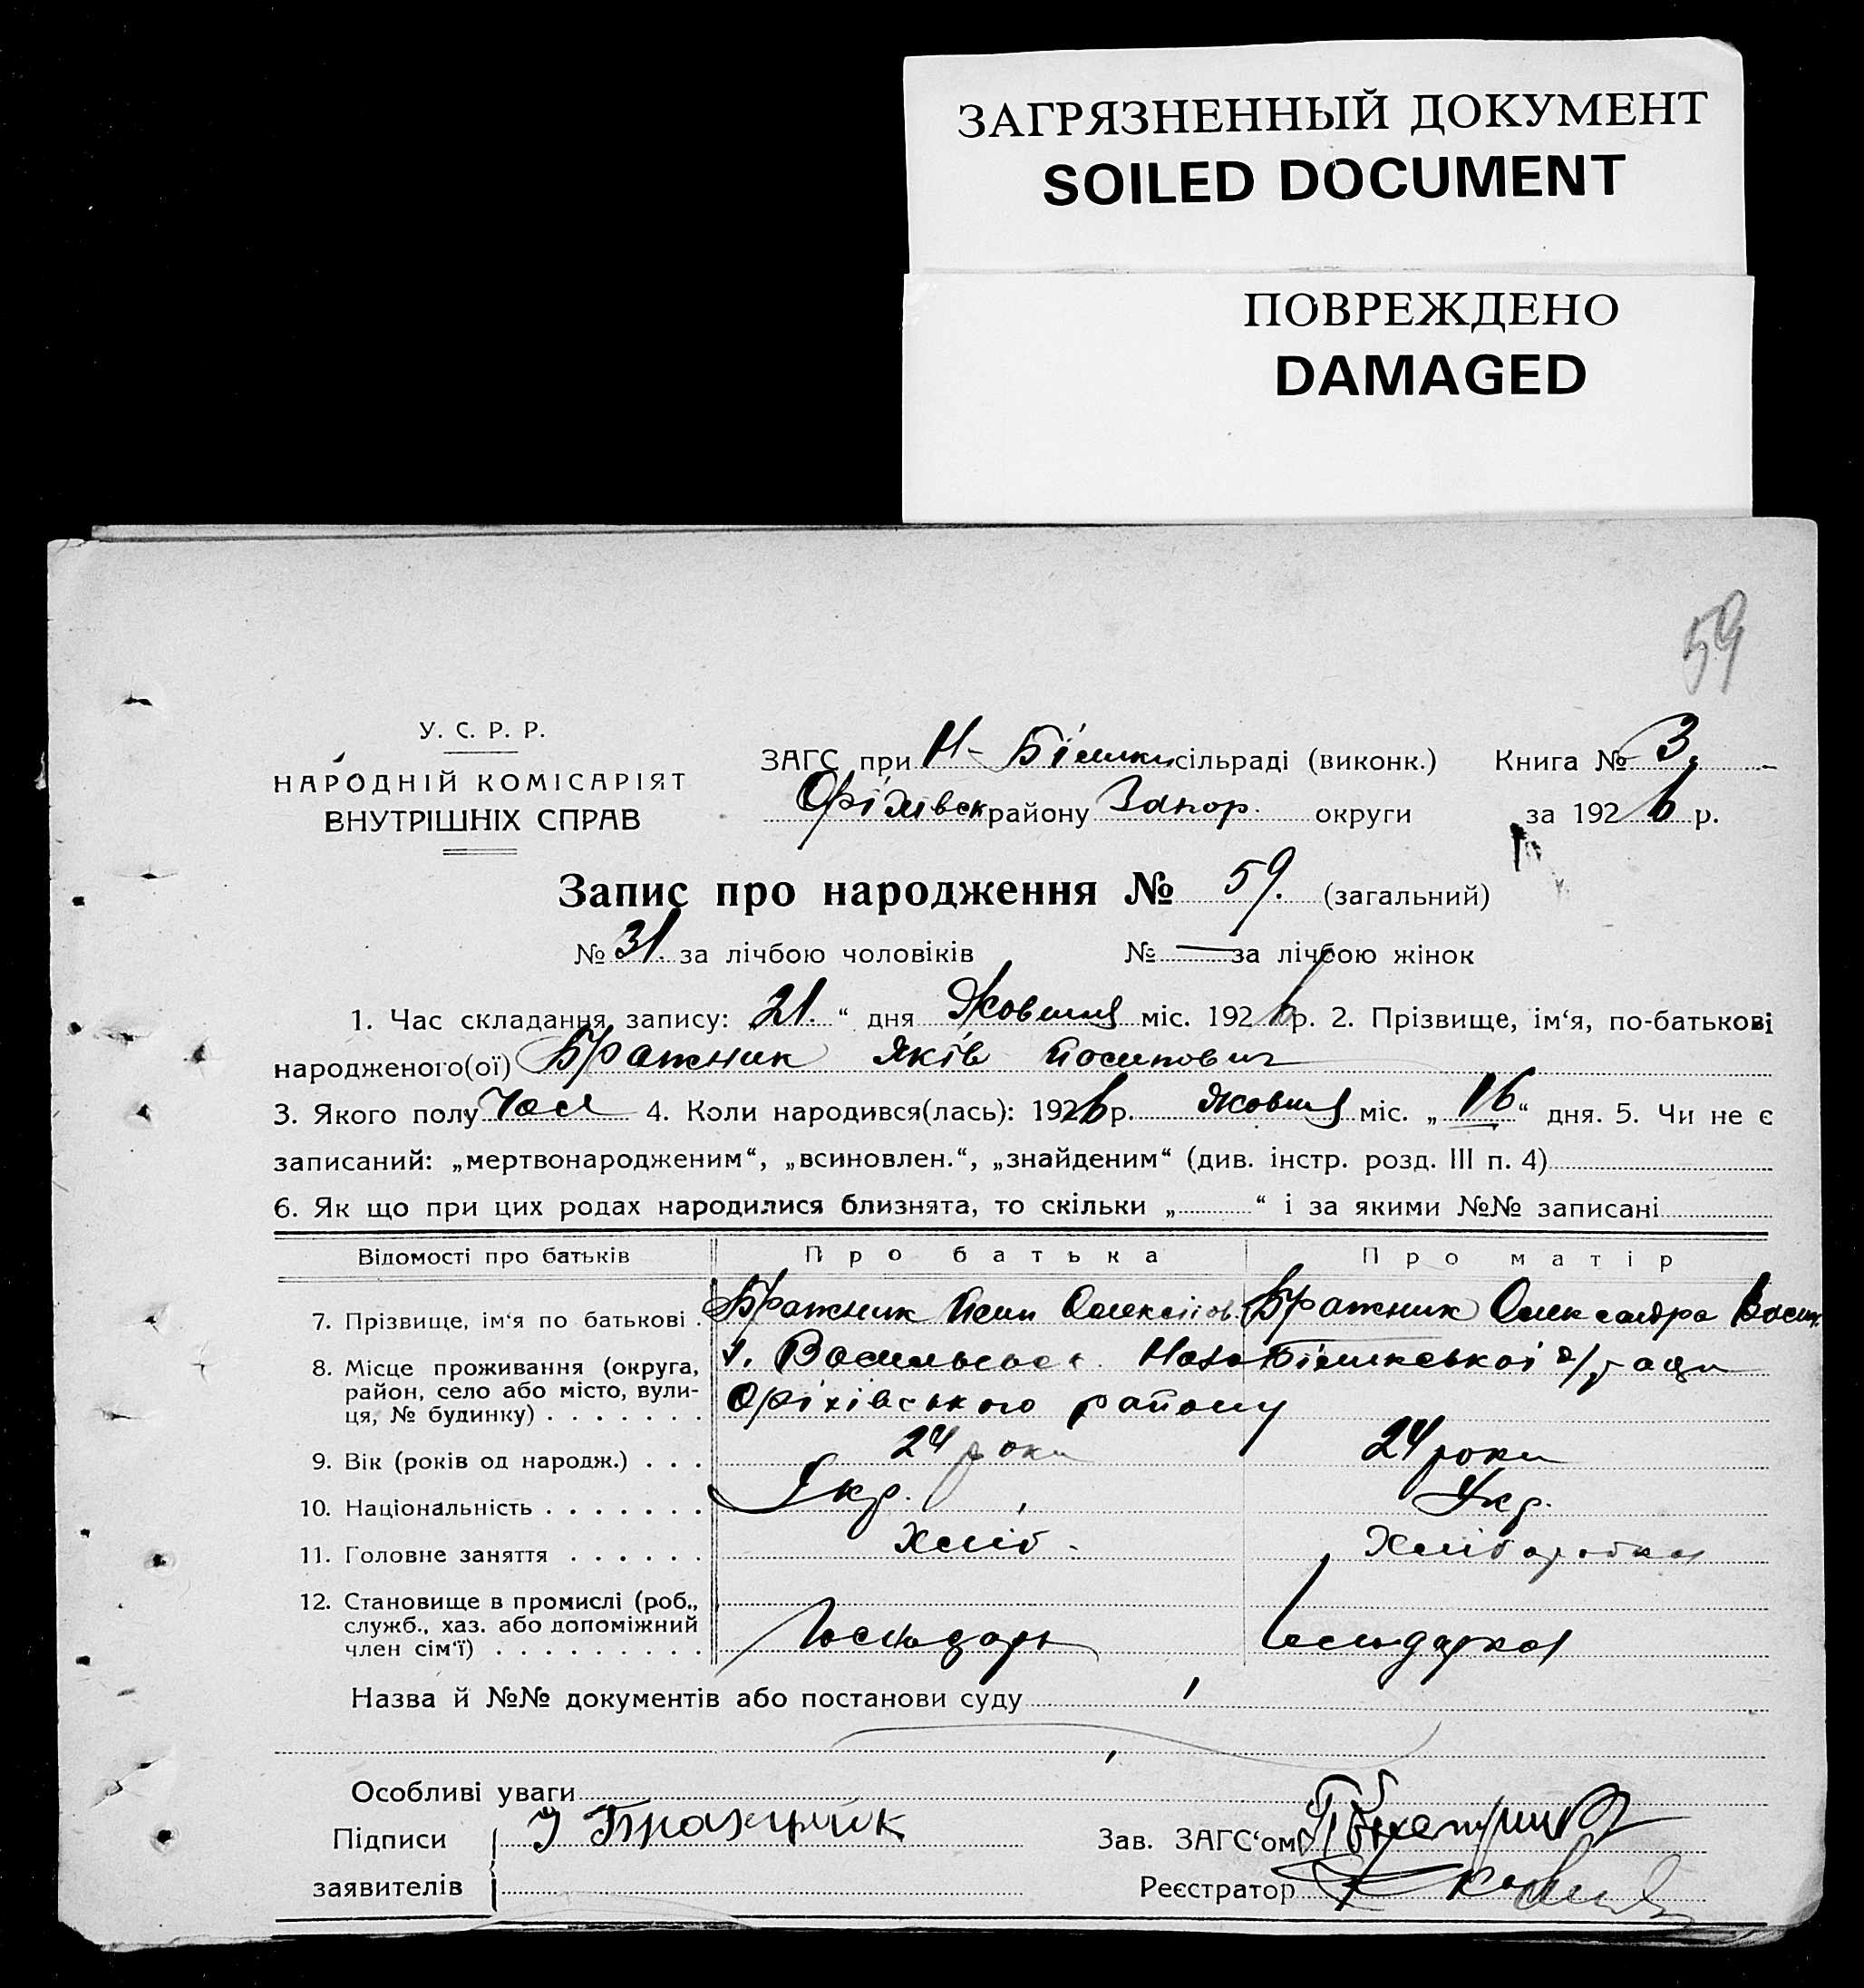 ЗАГРЯЗНЕННЫЙ ДОКУМЕНТ
SOILED DOCUMENT
ПОВРЕЖДЕНО
DAMAGED
59
У. С. Р. Р.
НАРОДНІЙ КОМІСАРІЯТ
ВНУТРІШНІХ СПРАВ
ЗАГС при Н- сільраді (виконк.) Книга № 3
району Запор. округи за 1926 р.
Запис про народження № 59. (загальний)
№ 31. за лічбою чоловіків № — за лічбою жінок
1. Час складання запису: „21.“ дня Жовтня міс. 1926 р. 2. Прізвище, ім‘я, по-батькові
народженого(ої) Бражник Яків Йосипович
3. Якого полу Чол 4. Коли народився(лась): 1926 р. Жовтня міс. „16“ дня. 5. Чи не є
записаний: „мертвонародженим“, „всиновлен.“, „знайденим“ (див. інстр. розд. III п. 4)
6. Як що при цих родах народилися близнята, то скільки „ “ і за якими №№ записані
Відомості про батьків Про батька Про матір
7. Прізвище, ім‘я по батькові . Бражник Олексійов. Бражник Олександра
8. Місце проживання (округа, район, село або місто, вулиця, № будинку) . . . . . . .
Оріхівського району
9. Вік (років од народж.) . . . 24 роки 24 роки
10. Національність . . . . . . . Укр. Укр.
11. Головне заняття . . . . . . Хліб. Хліборобка
12. Становище в промислі (роб., служб., хаз. або допоміжний член сім‘ї) . . . . . . . . . Господарь Господарка
Назва й №№ документів або постанови суду
Особливі уваги
Підписи Бражник Зав. ЗАГС‘ом
заявителів Реєстратор